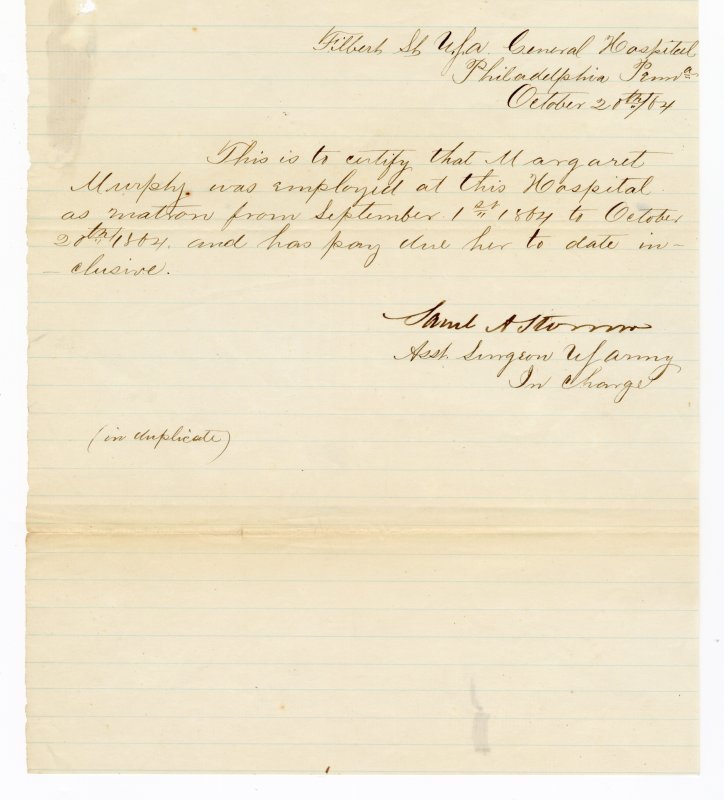 Filbert St U.S.A. General Hospital
Philadelphia Penna
October 20th/64
This is to certify that Margaret
Murphy was employed at this Hospital
as matron from September 1st 1864 to October
20th 1864, and has pay due her to date in-
-clusive.
Saml A Storrow
Asst Surgeon U S army
In Charge
(in duplicate)